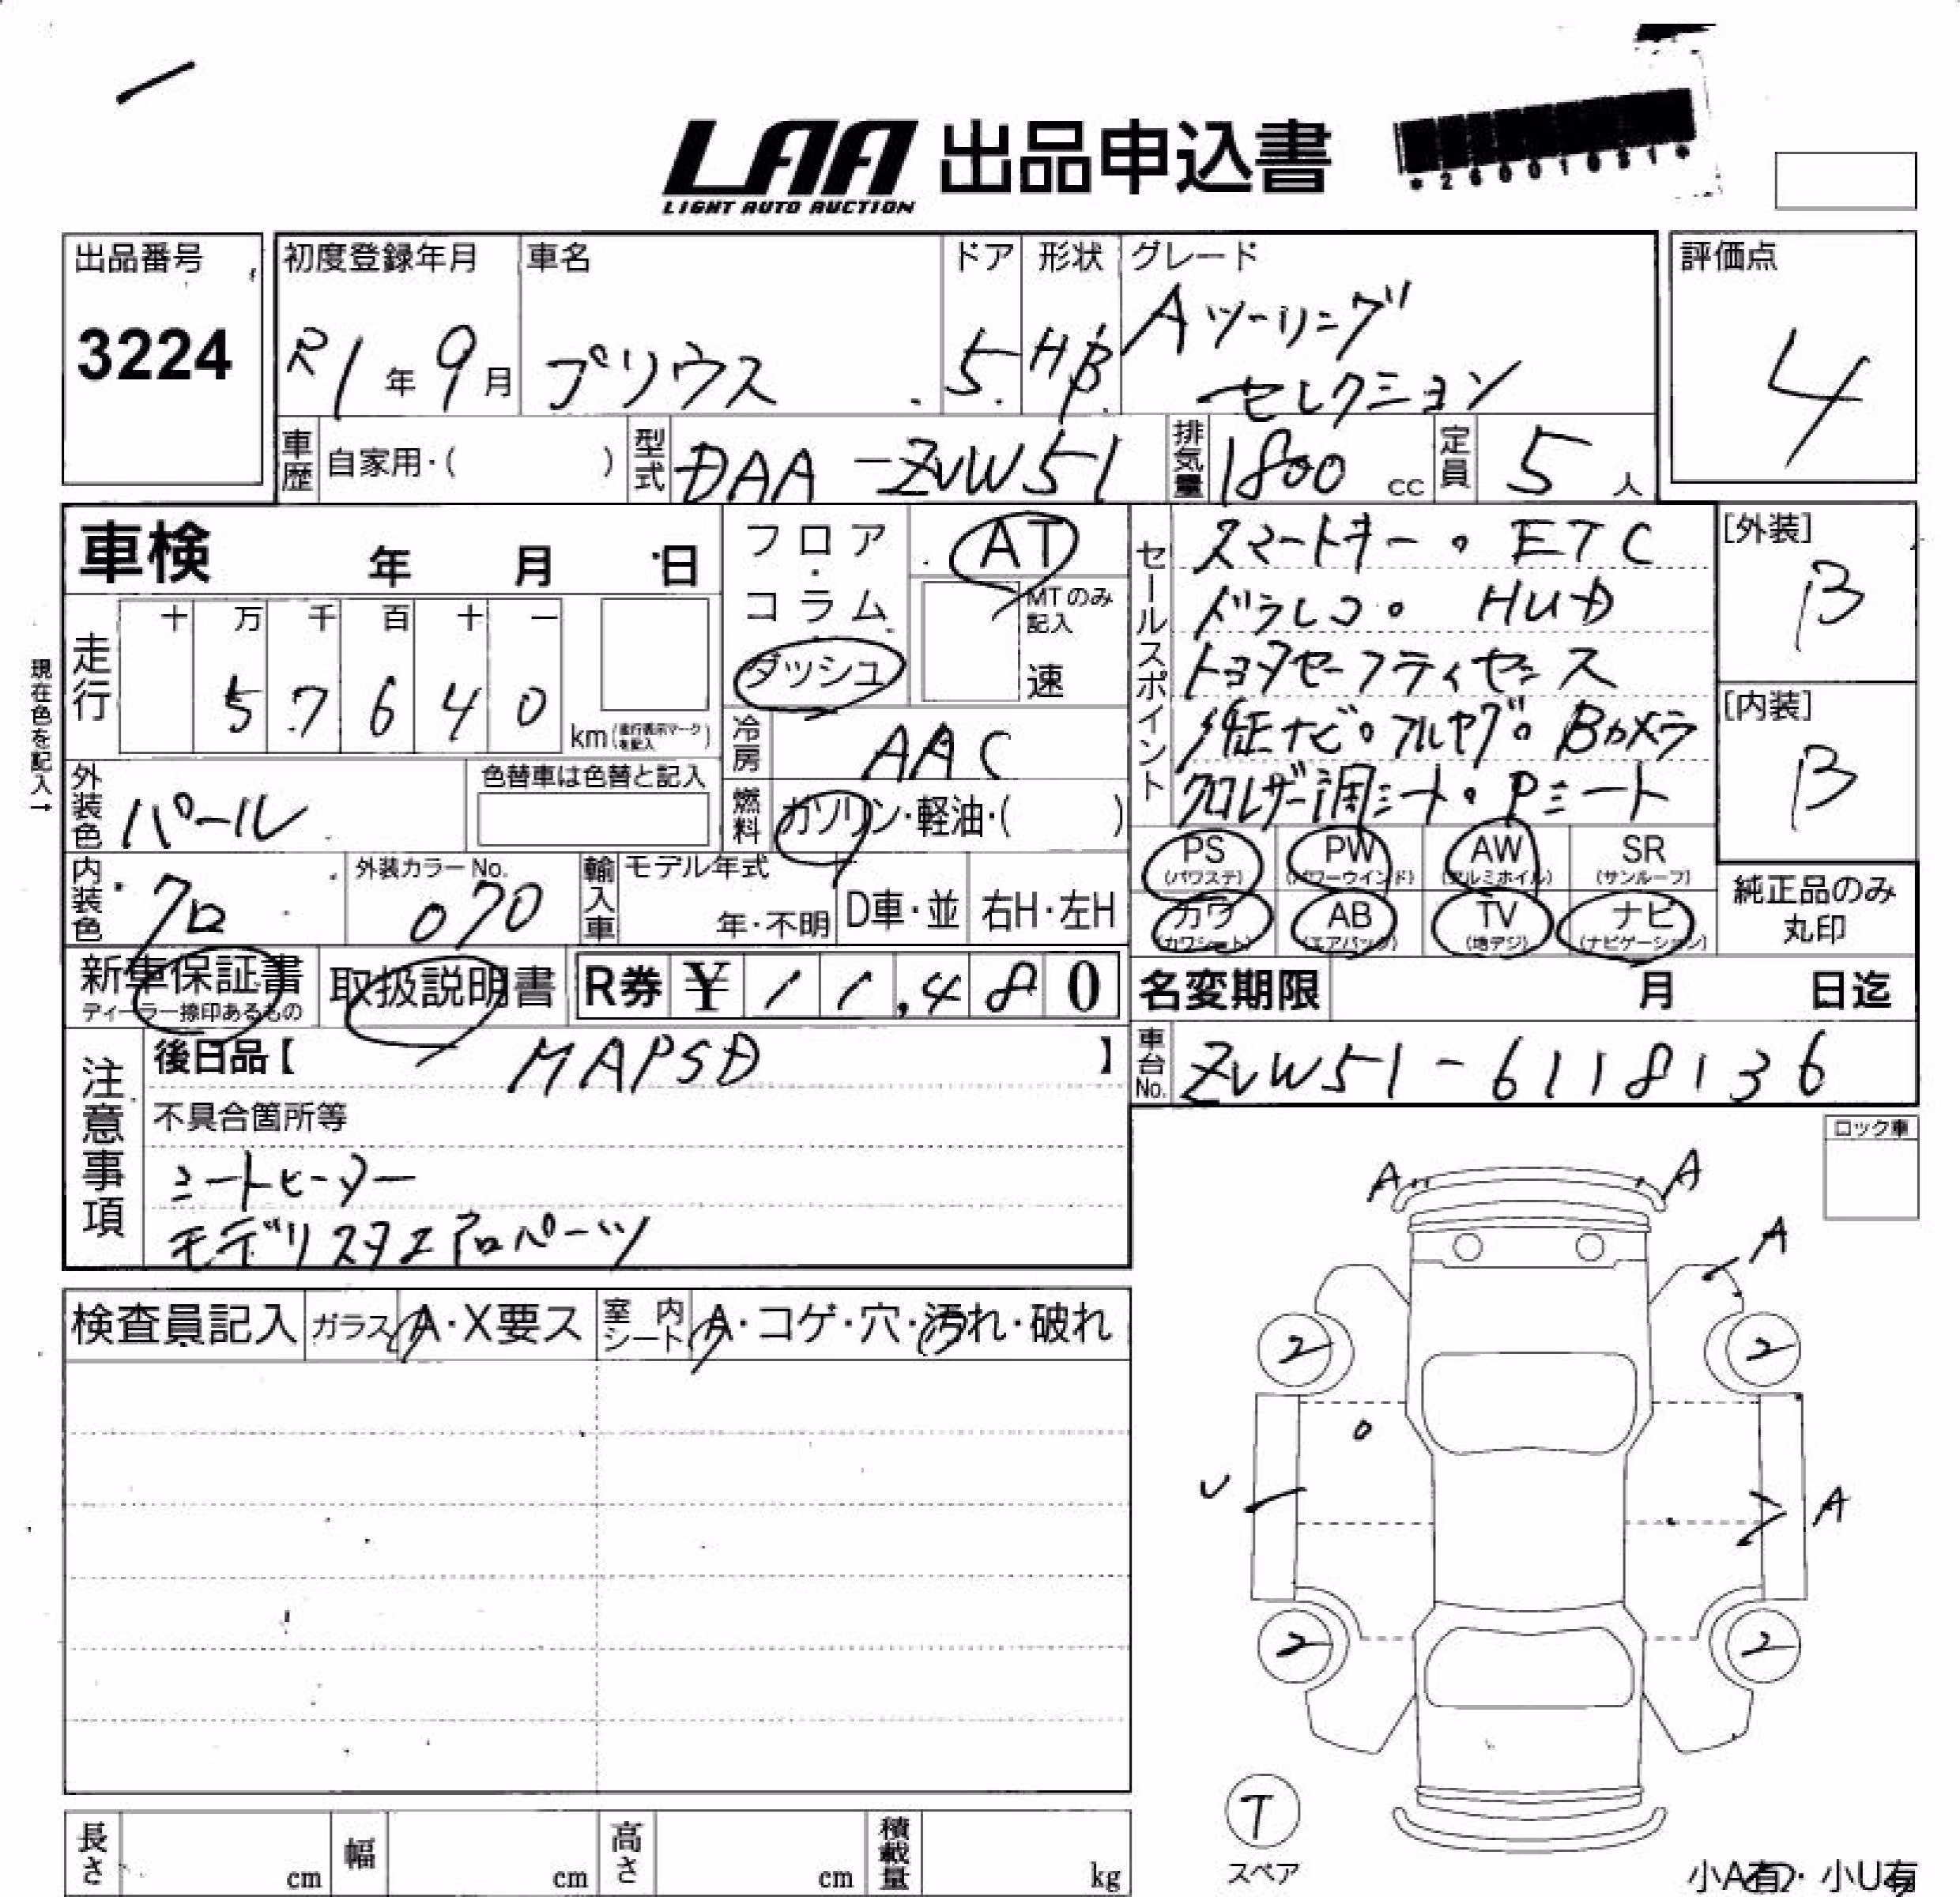 LAA 出品申込書
LIGHT AUTO AUCTION
*26001081*
出品番号
3224
初度登録年月
R1年9月
車名
プリウス
ドア
5
形状
HB
グレード
Aツーリング
セレクション
評価点
4
車歴 自家用・( )
型式 DAA-ZVW51
排気量 1800 cc
定員 5人
車検 年 月 日
現在色を記入→
走行
十 万 千 百 十 一
5 7 6 4 0
km(走行表示マークを記入)
フロア・コラム
ダッシュ
AT
MTのみ記入
速
冷房 AAC
燃料 ガソリン・軽油・( )
外装色 パール
色替車は色替と記入
内装色 クロ
外装カラーNo.
070
輸入車 モデル年式
年・不明
D車・並
右H・左H
セールスポイント
スマートキー。ETC
ドラレコ。HUD
トヨタセーフティセンス
純正ナビ。フルセグ。Bカメラ
クロレザー調シート・Pシート
[外装]
B
[内装]
B
PS (パワステ)
PW (パワーウインド)
AW (アルミホイル)
SR (サンルーフ)
カワ (カワシート)
AB (エアバック)
TV (地デジ)
ナビ (ナビゲーション)
純正品のみ
丸印
新車保証書
ディーラー捺印あるもの
取扱説明書
R券 ¥11,480
名変期限 月 日迄
車台No. ZVW51-6118136
注意事項
後日品【 MAPSD 】
不具合箇所等
シートヒーター
モデリスタエアロパーツ
ロック車
検査員記入
ガラス A・X要ス
室内シート A・コゲ・穴・汚れ・破れ
A A
A
2 2
U A
2 2
T
スペア
長さ cm
幅 cm
高さ cm
積載量 kg
小A有・小U有